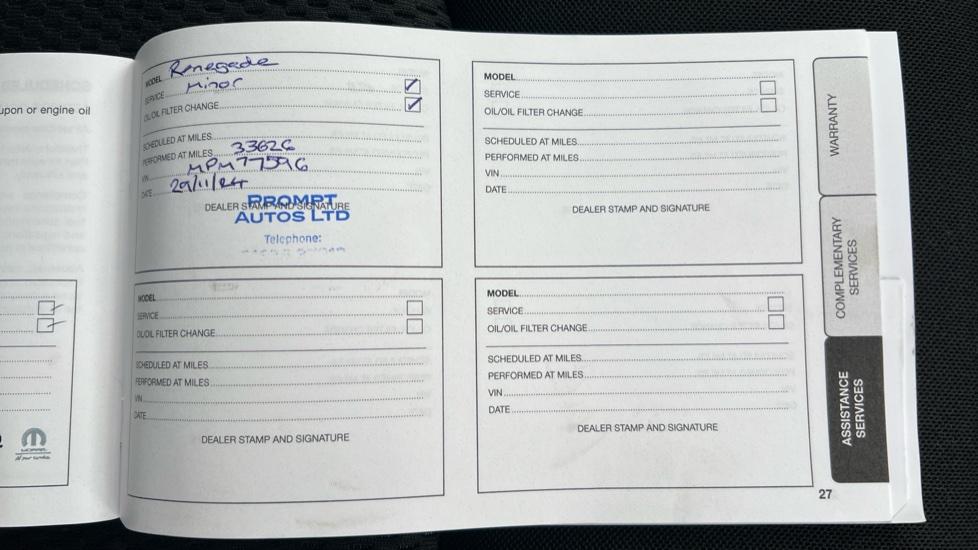 upon or engine oil
MODEL Renegade
SERVICE Minor
OIL/OIL FILTER CHANGE
SCHEDULED AT MILES
PERFORMED AT MILES 33626
VIN MPM77596
DATE 29/11/24
DEALER STAMP AND SIGNATURE
PROMPT
AUTOS LTD
Telephone:
MODEL
SERVICE
OIL/OIL FILTER CHANGE
SCHEDULED AT MILES
PERFORMED AT MILES
VIN
DATE
DEALER STAMP AND SIGNATURE
MODEL
SERVICE
OIL/OIL FILTER CHANGE
SCHEDULED AT MILES
PERFORMED AT MILES
VIN
DATE
DEALER STAMP AND SIGNATURE
MODEL
SERVICE
OIL/OIL FILTER CHANGE
SCHEDULED AT MILES
PERFORMED AT MILES
VIN
DATE
DEALER STAMP AND SIGNATURE
WARRANTY
COMPLEMENTARY
SERVICES
ASSISTANCE
SERVICES
27